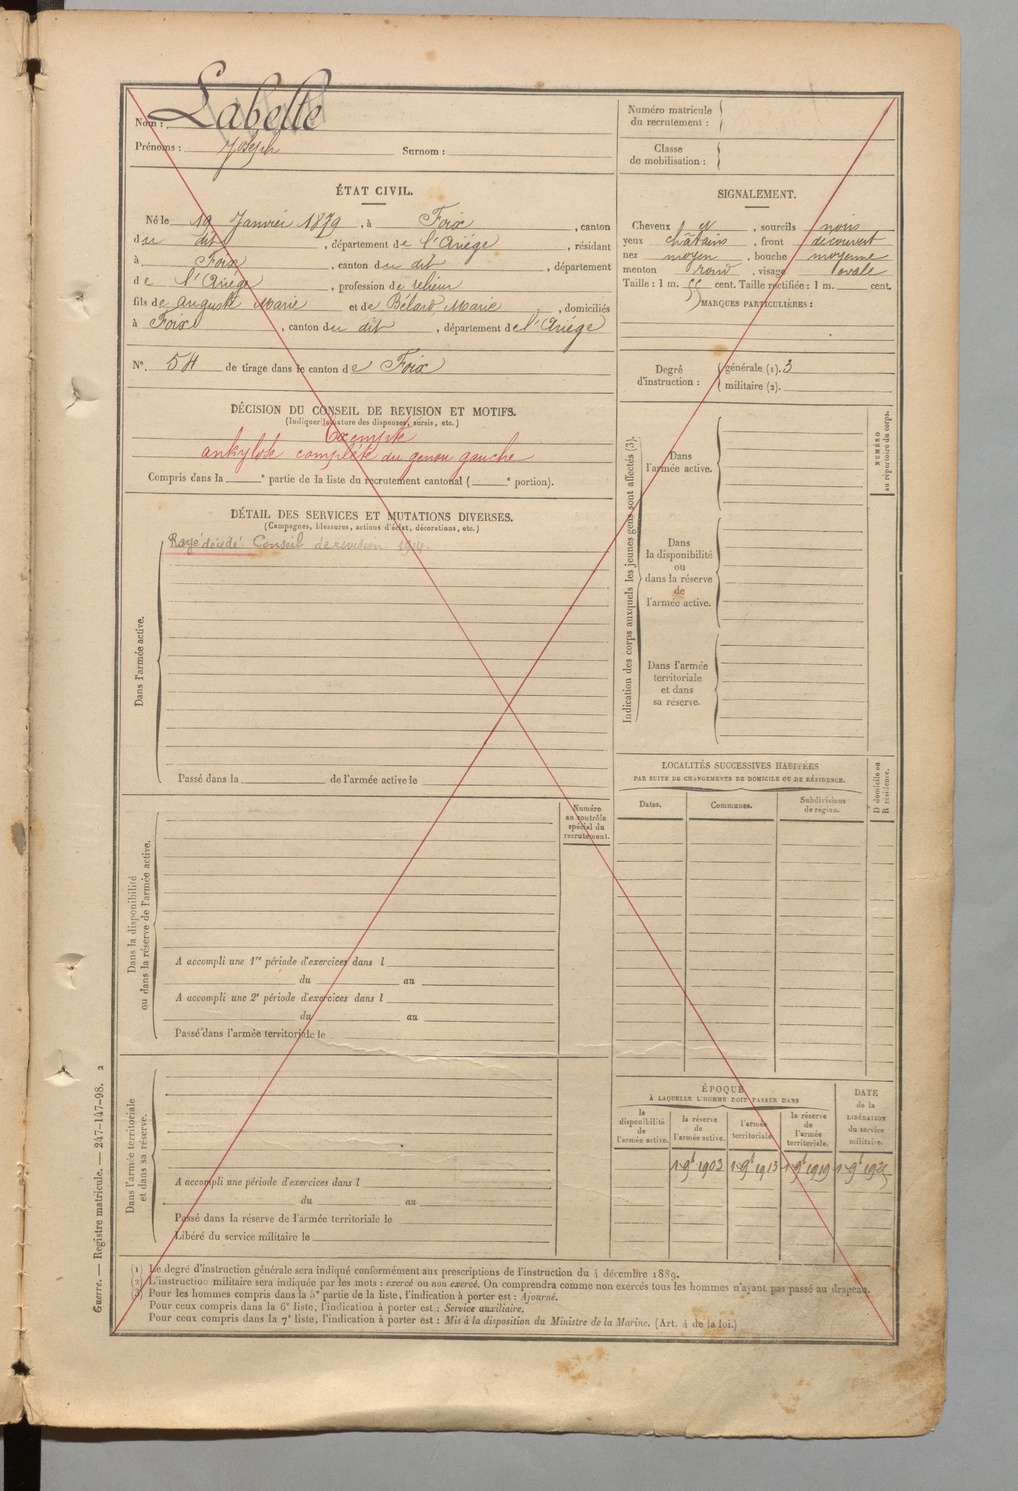 Nom : Labelle
Prénoms : Joseph Surnom :
ÉTAT CIVIL.
Né le 19 Janvier 1879, à Foix, canton
du dit, département de l'Ariége, résidant
à Foix, canton du dit, département
de l'Ariége, profession de relieur
fils de Auguste Marie et de Bélard, Marie, domiciliés
à Foix, canton du dit, département de l'Ariége
N° 54 de tirage dans le canton de Foix
DÉCISION DU CONSEIL DE REVISION ET MOTIFS.
(Indiquer la nature des dispenses, sursis, etc.)
Exempté
ankylose complète du genou gauche
Compris dans la e partie de la liste du recrutement cantonal ( e portion).
DÉTAIL DES SERVICES ET MUTATIONS DIVERSES.
(Campagnes, blessures, actions d'éclat, décorations, etc.)
Dans l'armée active.
Rayé décédé Conseil de revision 1914.
Passé dans la de l'armée active le
Dans la disponibilité
ou dans la réserve de l'armée active.
Numéro
au contrôle
spécial du
recrutement.
A accompli une 1re période d'exercices dans l
du au
A accompli une 2e période d'exercices dans l
du au
Passé dans l'armée territoriale le
Dans l'armée territoriale
et dans sa réserve.
A accompli une période d'exercices dans l
du au
Passé dans la réserve de l'armée territoriale le
Libéré du service militaire le
Numéro matricule
du recrutement :
Classe
de mobilisation :
SIGNALEMENT.
Cheveux et, sourcils noirs
yeux châtains, front découvert
nez moyen, bouche moyenne
menton rond, visage ovale
Taille : 1 m. 55 cent. Taille rectifiée : 1 m. cent.
MARQUES PARTICULIÈRES :
Degré
d'instruction :
générale (1). 3
militaire (2).
Indication des corps auxquels les jeunes gens sont affectés (3).
Dans
l'armée active.
Dans
la disponibilité
ou
dans la réserve
de
l'armée active.
Dans l'armée
territoriale
et dans
sa réserve.
NUMÉRO
au répertoire du corps.
LOCALITÉS SUCCESSIVES HABITÉES
PAR SUITE DE CHANGEMENTS DE DOMICILE OU DE RÉSIDENCE.
Dates. Communes. Subdivisions
de région.
D domicile ou
R résidence.
ÉPOQUE
À LAQUELLE L'HOMME DOIT PASSER DANS
la
disponibilité
de
l'armée active.
la réserve
de
l'armée active.
l'armée
territoriale.
la réserve
de
l'armée
territoriale.
DATE
de la
LIBÉRATION
du service
militaire.
1 9b 1903 1 9b 1913 1 9b 1919 1 9b 1925
(1) Le degré d'instruction générale sera indiqué conformément aux prescriptions de l'instruction du 4 décembre 1889.
(2) L'instruction militaire sera indiquée par les mots : exercé ou non exercé. On comprendra comme non exercés tous les hommes n'ayant pas passé au drapeau.
(3) Pour les hommes compris dans la 5e partie de la liste, l'indication à porter est : Ajourné.
Pour ceux compris dans la 6e liste, l'indication à porter est : Service auxiliaire.
Pour ceux compris dans la 7e liste, l'indication à porter est : Mis à la disposition du Ministre de la Marine. (Art. 4 de la loi.)
Guerre. — Registre matricule. — 247-147-98. 2